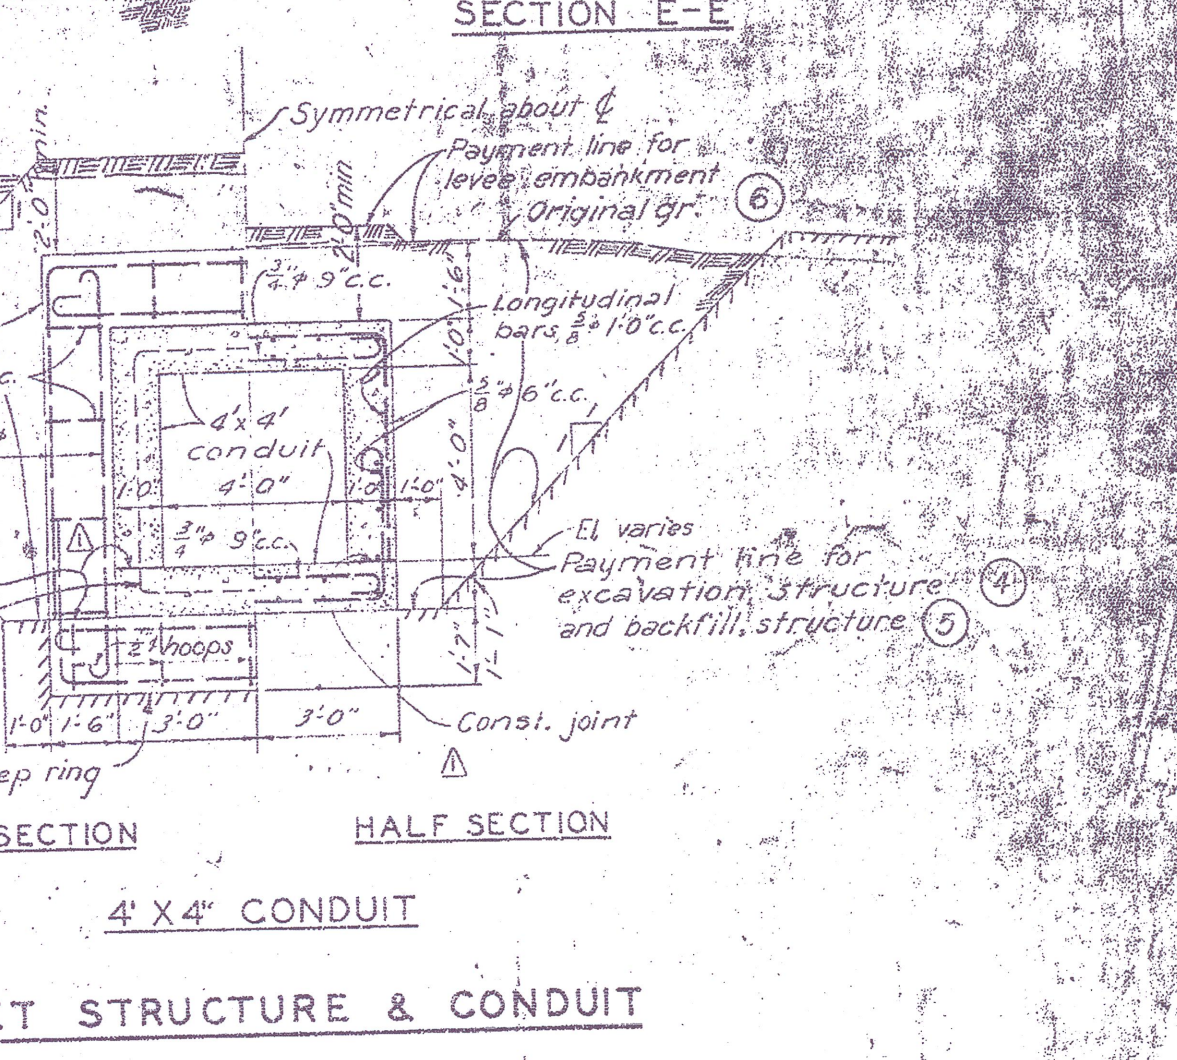 SECTION E-E
Symmetrical about ℄
Payment line for
levee embankment
⑥
Original gr.
2'-0" min.
2'-0" min
3/4" ϕ 9" c.c.
1'-6"
Longitudinal
bars 5/8" ϕ 1'-0" c.c.
1'-0"
c.
5/8" ϕ 6" c.c.
4' x 4'
conduit
1
1
4'-0"
1'-0"
4'-0"
1'-0"
1'-0"
3/4" ϕ 9" c.c.
1
El. varies
Payment line for
excavation, structure ④
and backfill, structure ⑤
hoops
1'-7"
1'-1"
1'-0" 1'-6" 3'-0" 3'-0"
Const. joint
1
ep ring
SECTION
HALF SECTION
4' X 4" CONDUIT
ET STRUCTURE & CONDUIT